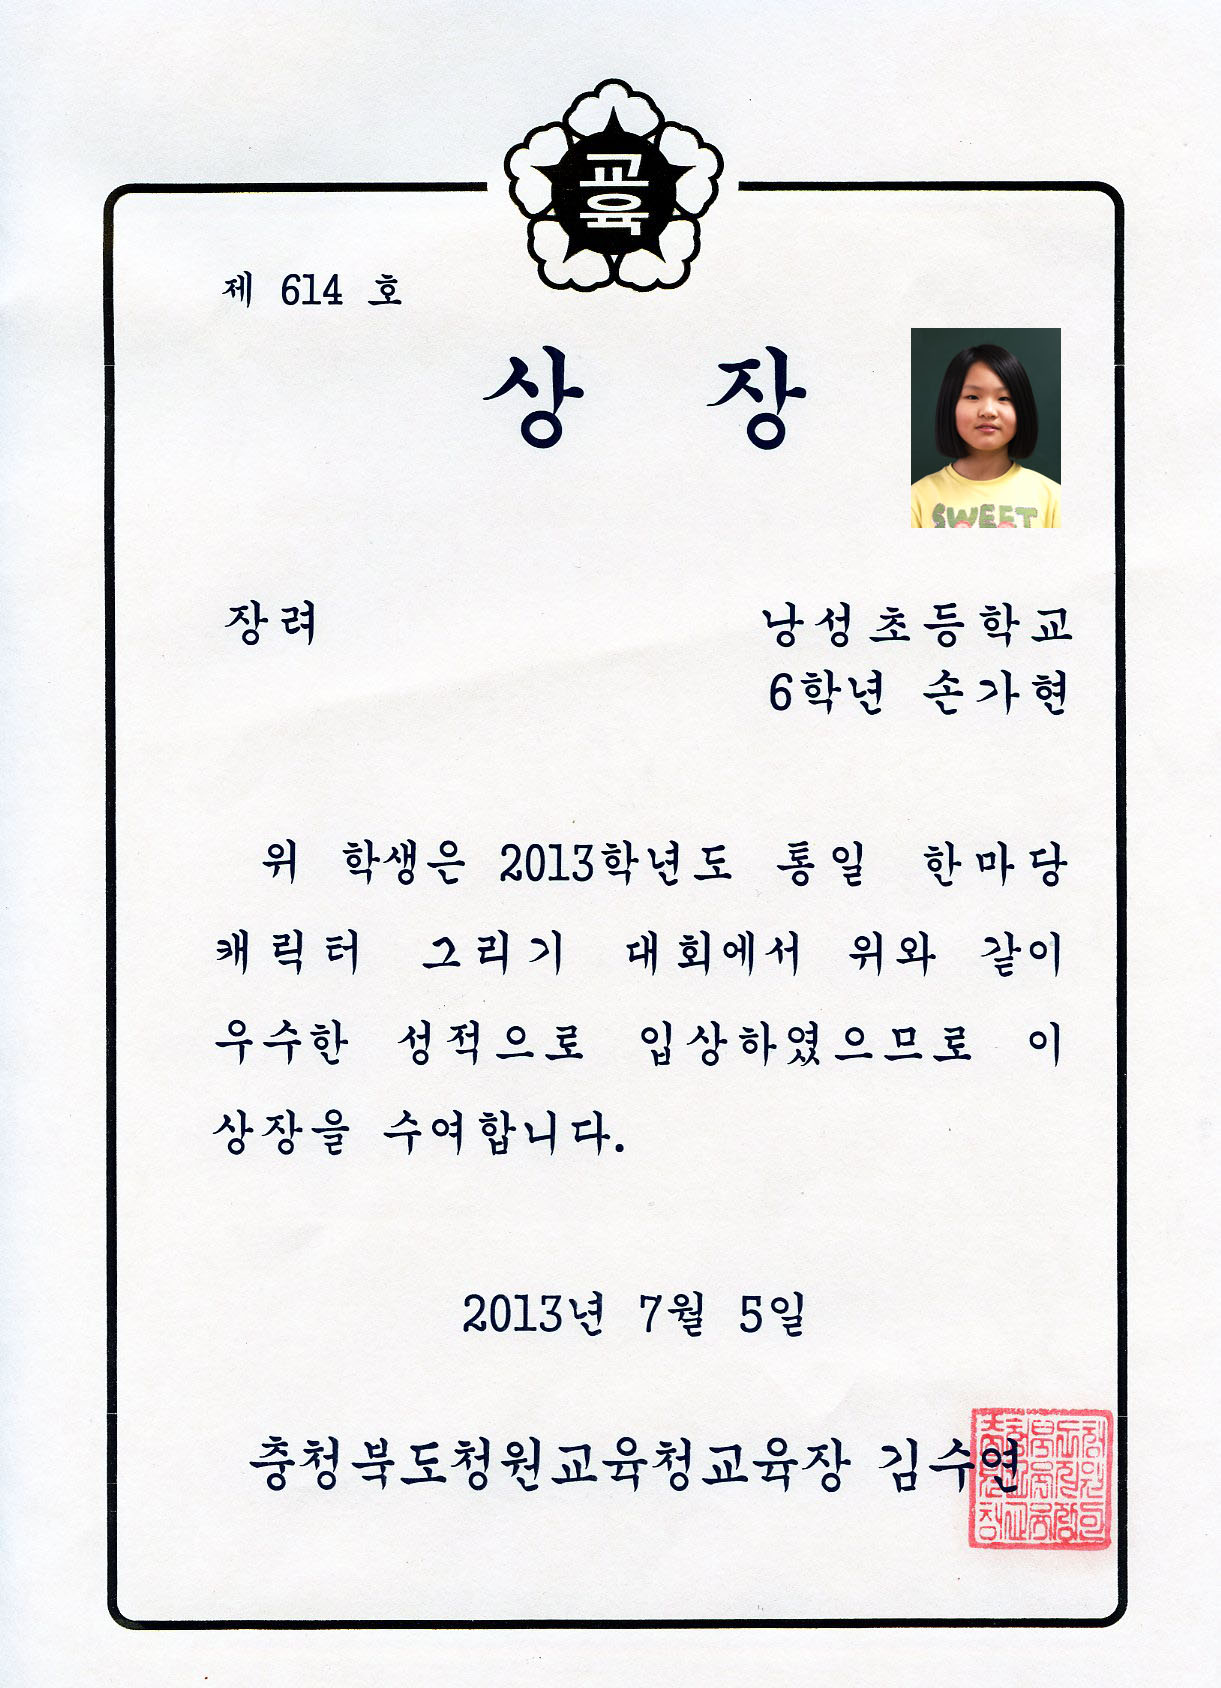 교육
제 614 호
상 장
SWEET
장려
낭성초등학교
6학년 손가현
위 학생은 2013학년도 통일 한마당
캐릭터 그리기 대회에서 위와 같이
우수한 성적으로 입상하였으므로 이
상장을 수여합니다.
2013년 7월 5일
충청북도청원교육청교육장 김수연